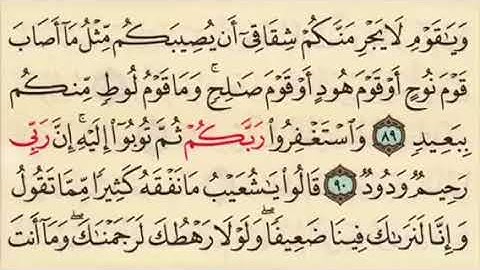 وَيَٰقَوْمِ لَا يَجْرِمَنَّكُمْ شِقَاقِىٓ أَن يُصِيبَكُم مِّثْلُ مَآ أَصَابَ
قَوْمَ نُوحٍ أَوْ قَوْمَ هُودٍ أَوْ قَوْمَ صَٰلِحٍ ۚ وَمَا قَوْمُ لُوطٍ مِّنكُم
بِبَعِيدٍ ٨٩ وَٱسْتَغْفِرُوا۟ رَبَّكُمْ ثُمَّ تُوبُوٓا۟ إِلَيْهِ ۚ إِنَّ رَبِّى
رَحِيمٌ وَدُودٌ ٩٠ قَالُوا۟ يَٰشُعَيْبُ مَا نَفْقَهُ كَثِيرًا مِّمَّا تَقُولُ
وَإِنَّا لَنَرَىٰكَ فِينَا ضَعِيفًا ۖ وَلَوْلَا رَهْطُكَ لَرَجَمْنَٰكَ ۖ وَمَآ أَنتَ